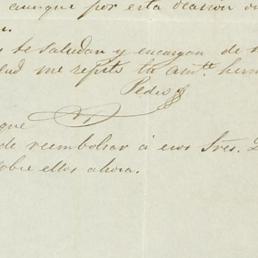 aunque por esta ocasion
se saludan y encargan de
me repito tu amte. herm
Pedro
que
de reembolsar á esos Sres.
sobre ellos ahora.